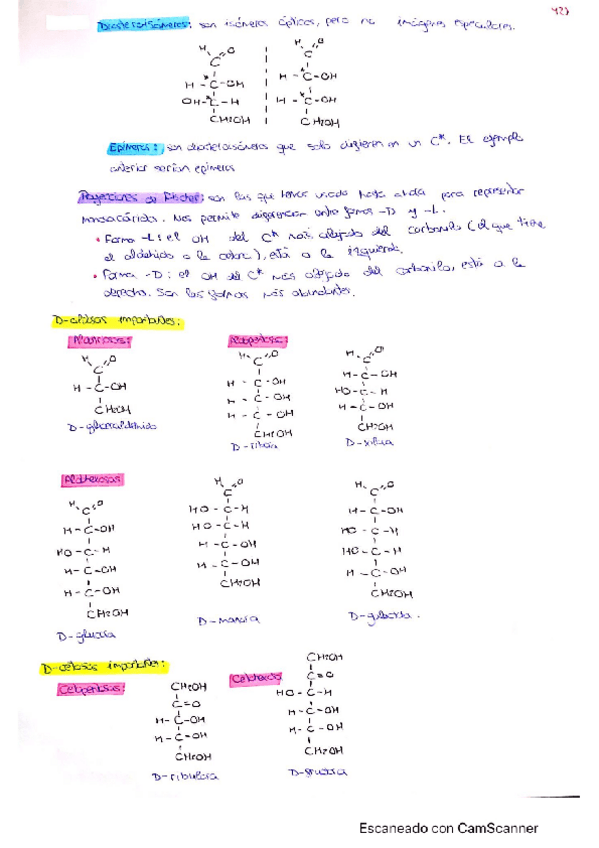 Diastereoisómeros: son isómeros ópticos, pero no imágenes especulares.
H O H O
C C
H - C - OH H - C - OH
OH - C - H H - C - OH
CH2OH CH2OH
Epímeros: son diastereoisómeros que solo difieren en un C*. El ejemplo
anterior serían epímeros
Proyecciones de Fischer: son las que hemos usado hasta ahora para representar
monosacáridos. Nos permite diferenciar entre forma -D y -L.
• Forma -L: el OH del C* más alejado del carbonilo (el que tiene
el aldehído o la cetona), está a la izquierda.
• Forma -D: el OH del C* más alejado del carbonilo, está a la
derecha. Son las formas más abundantes.
D-aldosas importantes:
Aldotriosas: Aldopentosas:
H O H O H O
C C C
H - C - OH H - C - OH H - C - OH
CH2OH H - C - OH HO - C - H
D-gliceraldehído H - C - OH H - C - OH
CH2OH CH2OH
D-ribosa D-xilosa
Aldohexosas
H O H O H O
C C C
H - C - OH HO - C - H H - C - OH
HO - C - H HO - C - H HO - C - H
H - C - OH H - C - OH HO - C - H
H - C - OH H - C - OH H - C - OH
CH2OH CH2OH CH2OH
D-glucosa D-manosa D-galactosa.
D-cetosas importantes:
Cetopentosas: Cetohexosas
CH2OH CH2OH
C=O C=O
H - C - OH HO - C - H
H - C - OH H - C - OH
CH2OH H - C - OH
CH2OH
D-ribulosa D-fructosa
Escaneado con CamScanner